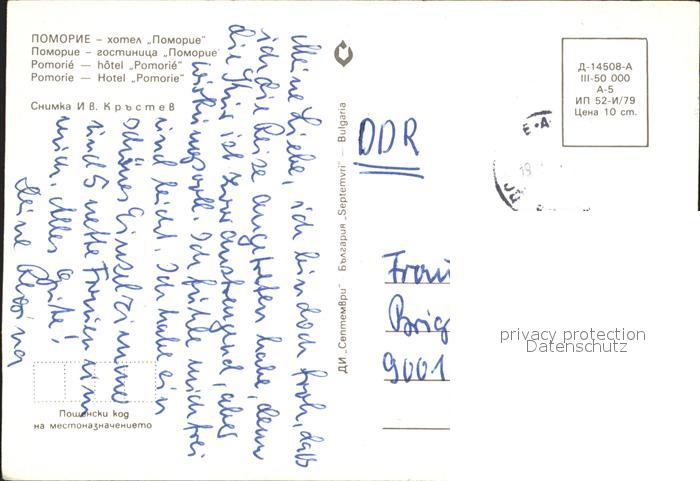 ПОМОРИЕ – хотел „Поморие"
Поморие – гостиница „Поморие"
Pomorié — hôtel „Pomorié"
Pomorie — Hotel „Pomorie"
Снимка И В. Кръстев
Meine Liebe, ich bin doch froh, dass
ich die Reise angetreten habe, denn
die Kur ist zwar anstrengend, aber
wirkungsvoll. Ich fühle mich frei
und leicht. Ich habe ein
schönes Einzelzimmer
und 5 nette Frauen um
mich. Alles Gute!
Deine Regina
Пощенски код
на местоназначението
ДИ „Септември" България „Septemvri" — Bulgaria
Д-14508-А
III-50 000
А-5
ИП 52-И/79
Цена 10 ст.
DDR
Frau
Brig
9001
privacy protection
Datenschutz